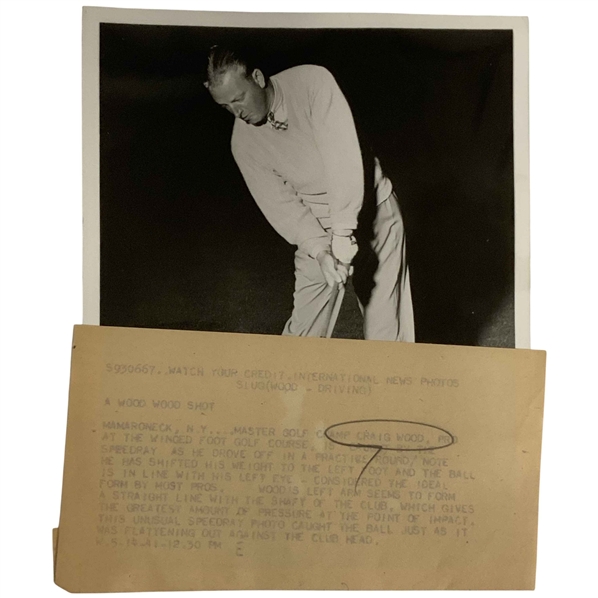 S930667..WATCH YOUR CREDIT..INTERNATIONAL NEWS PHOTOS
SLUG(WOOD - DRIVING)
A WOOD WOOD SHOT
MAMARONECK, N.Y....MASTER GOLF CHAMP CRAIG WOOD, PRO
AT THE WINGED FOOT GOLF COURSE, IS BY THE
SPEEDRAY AS HE DROVE OFF IN A PRACTICE ROUND, NOTE
HE HAS SHIFTED HIS WEIGHT TO THE LEFT FOOT AND THE BALL
IS IN LINE WITH HIS LEFT EYE. CONSIDERED THE IDEAL
FORM BY MOST PROS. WOOD'S LEFT ARM SEEMS TO FORM
A STRAIGHT LINE WITH THE SHAFT OF THE CLUB, WHICH GIVES
THE GREATEST AMOUNT OF PRESSURE AT THE POINT OF IMPACT.
THIS UNUSUAL SPEEDRAY PHOTO CAUGHT THE BALL JUST AS IT
WAS FLATTENING OUT AGAINST THE CLUB HEAD.
-41-12.30 PM